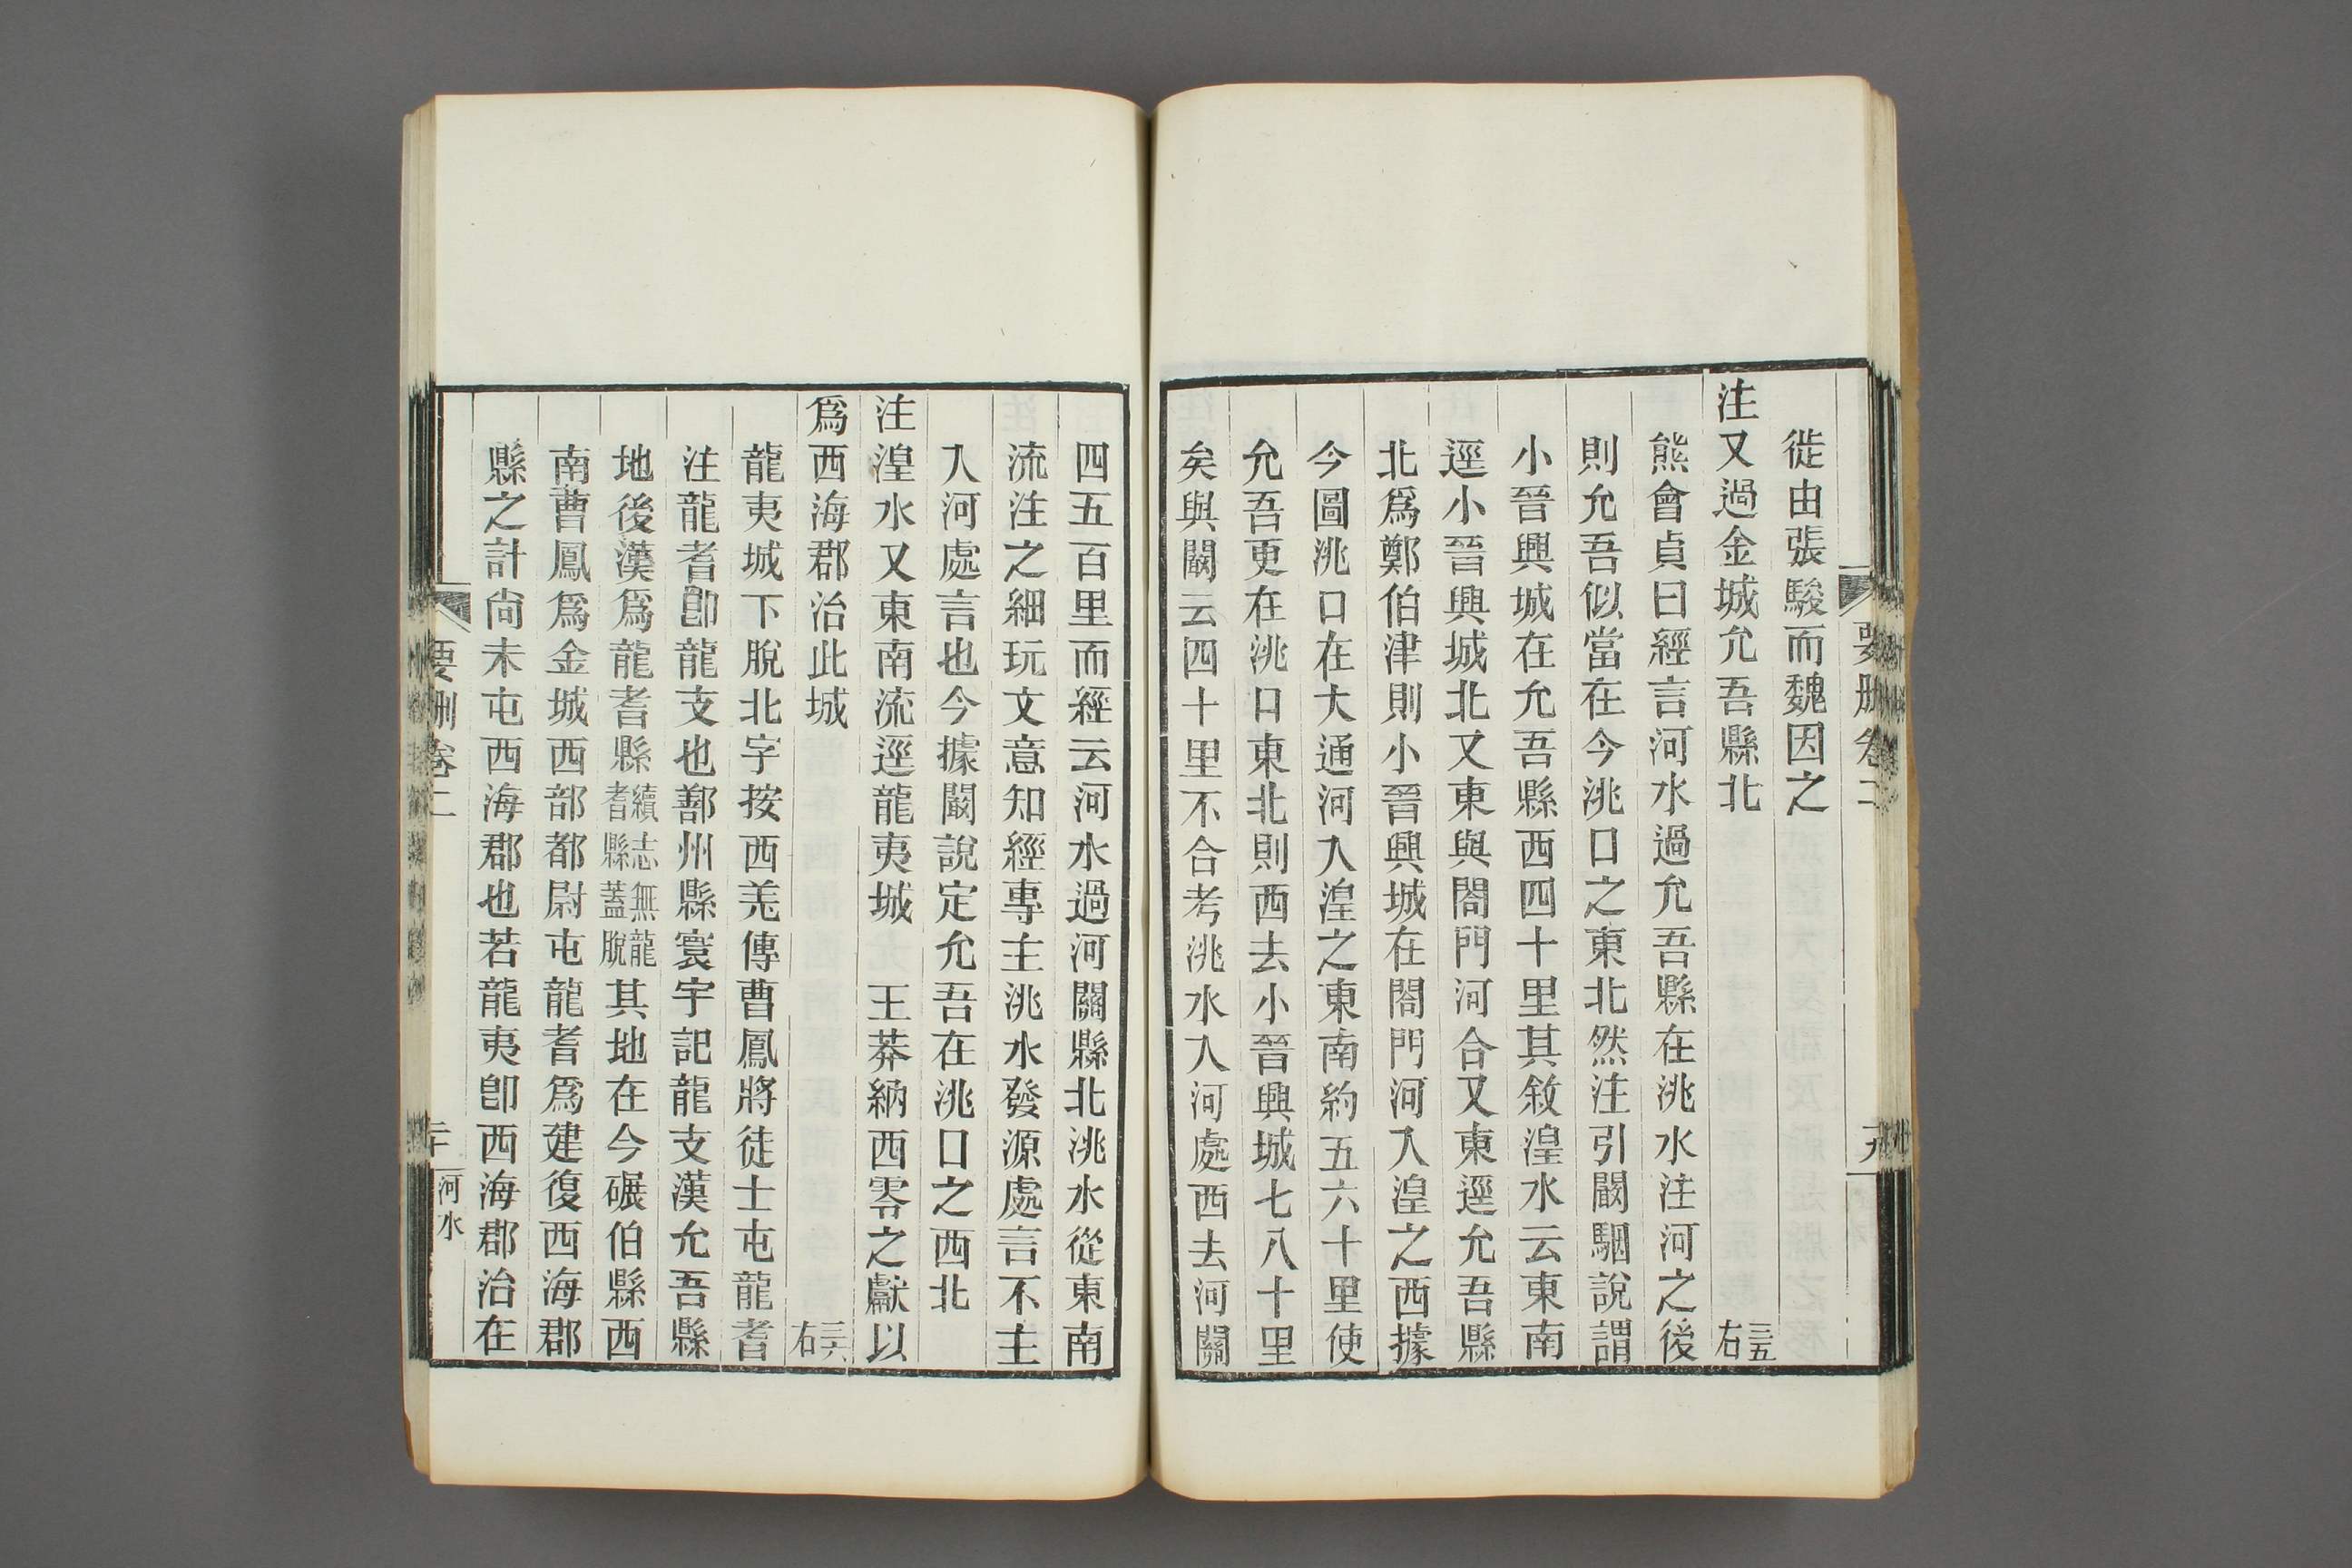 要刪卷二
徙由張駿而魏因之
注又過金城允吾縣北 三五右
熊會貞曰經言河水過允吾縣在洮水注河之後
則允吾似當在今洮口之東北然注引闞駰說謂
小晉興城在允吾縣西四十里其敘湟水云東南
逕小晉興城北又東與閤門河合又東逕允吾縣
北爲鄭伯津則小晉興城在閤門河入湟之西據
今圖洮口在大通河入湟之東南約五六十里使
允吾更在洮口東北則西去小晉興城七八十里
矣與闞云四十里不合考洮水入河處西去河關
四五百里而經云河水過河關縣北洮水從東南
流注之細玩文意知經專主洮水發源處言不主
入河處言也今據闞說定允吾在洮口之西北
注湟水又東南流逕龍夷城 王莽納西零之獻以
爲西海郡治此城 三六右
龍夷城下脫北字按西羌傳曹鳳將徒士屯龍耆
注龍耆卽龍支也鄯州縣寰宇記龍支漢允吾縣
地後漢爲龍耆縣續志無龍耆縣蓋脫其地在今碾伯縣西
南曹鳳爲金城西部都尉屯龍耆爲建復西海郡
縣之計尙未屯西海郡也若龍夷卽西海郡治在
要刪卷二 二十 河水